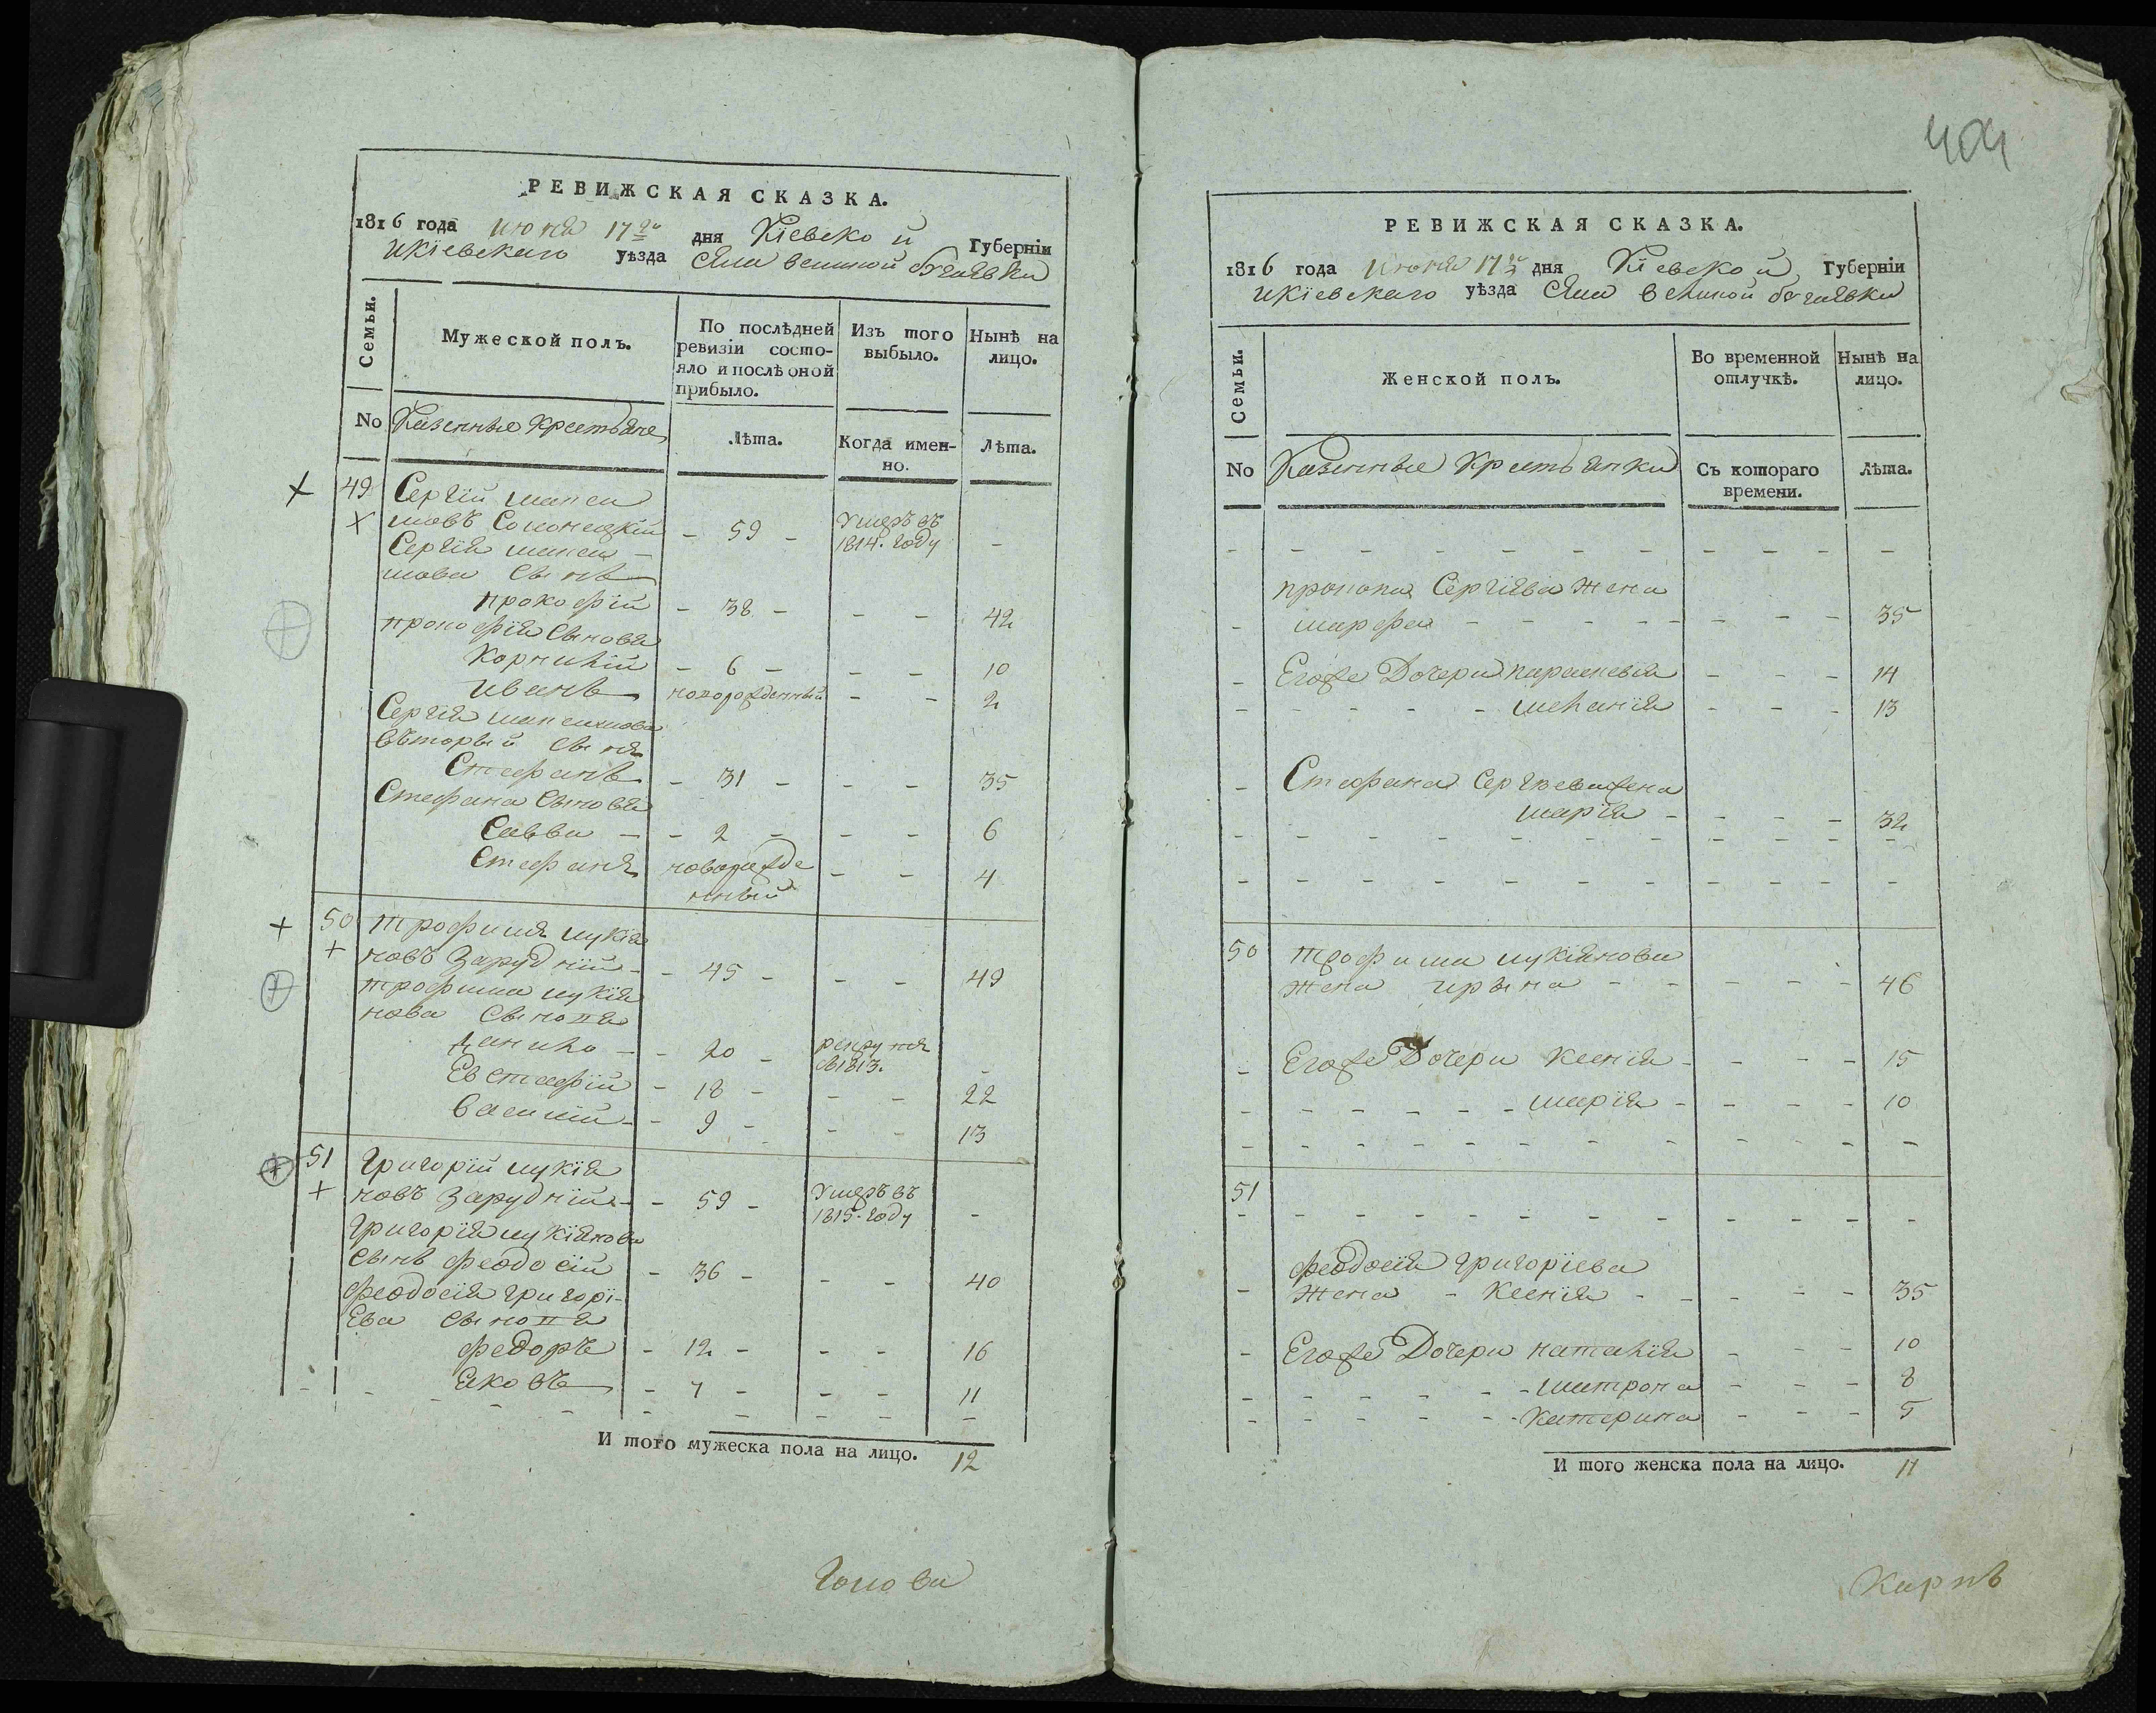 РЕВИЖСКАЯ СКАЗКА.
1816 года июня 17го дня Кіевской Губерніи
Икіевскаго уѣзда Села великой бугаевки
Семьи.
Мужеской полъ.
По послѣдней ревизіи состояло и послѣ оной прибыло.
Изъ того выбыло.
Нынѣ на лицо.
No
Казенные Крестьяне
Лѣта.
Когда именно.
Лѣта.
49 Сергій макси
мовъ Соломецкій - 59 - Умеръ въ 1814. году -
Сергія макси-
мова Сынъ
прокофій - 38 - - - 42
прокофія Сыновя
Корнилій - 6 - - - 10
иванъ новорожденный - - 2
Сергія максимова
въторый Сын
Стефанъ - 31 - - - 35
Стефана Сыновя
Савва - - 2 - - - 6
Стефанъ новорожде - - 4
нный
50 трофим лукія
новъ Заруднїй - - 45 - - - 49
трофима лукія
нова Сыновя
данило - - 20 - рекрутъ в1813. -
Евстафій - 18 - - - 22
Василій - - 9 - - - 13
51 григорій лукія
новъ Заруднїй - - 59 - Умеръ въ 1815. году -
григорія лукіянова
Сынъ феодосій - 36 - - - 40
феодосія григорі-
ева Сыновя
федоръ - 12 - - - 16
Яковъ - 7 - - - 11
И того мужеска пола на лицо. 12
Голова
404
РЕВИЖСКАЯ СКАЗКА.
1816 года июня 17го дня Кіевской Губерніи
Икіевскаго уѣзда Села великой бугаевки
Семьи.
Женской полъ.
Во временной отлучкѣ.
Нынѣ на лицо.
No
Казенные Крестьянки
Съ котораго времени.
Лѣта.
- - - - - - - - - - -
прокопа Сергіева жена
- марфа - - - - - - - - 35
- Егоже Дочери параскевія - - - 14
- - - - - меланія - - - 13
- Стефана Сергѣева жена
марія - - - - 32
- - - - - - - - - - -
- - - - - - - - - - -
50 трофима лукіянова
жена ирына - - - - - - 46
- Егоже Дочери Ксенія - - - - 15
- - - - - - - марія - - - - 10
- - - - - - - - - - -
51
- - - - - - - - - - -
феодосія григоріева
- жена - Ксенія - - - - - 35
- Егоже Дочери наталія - - - 10
- - - - - - - матрона - - - 8
- - - - - - - Катерина - - - 5
И того женска пола на лицо. 11
Карпъ